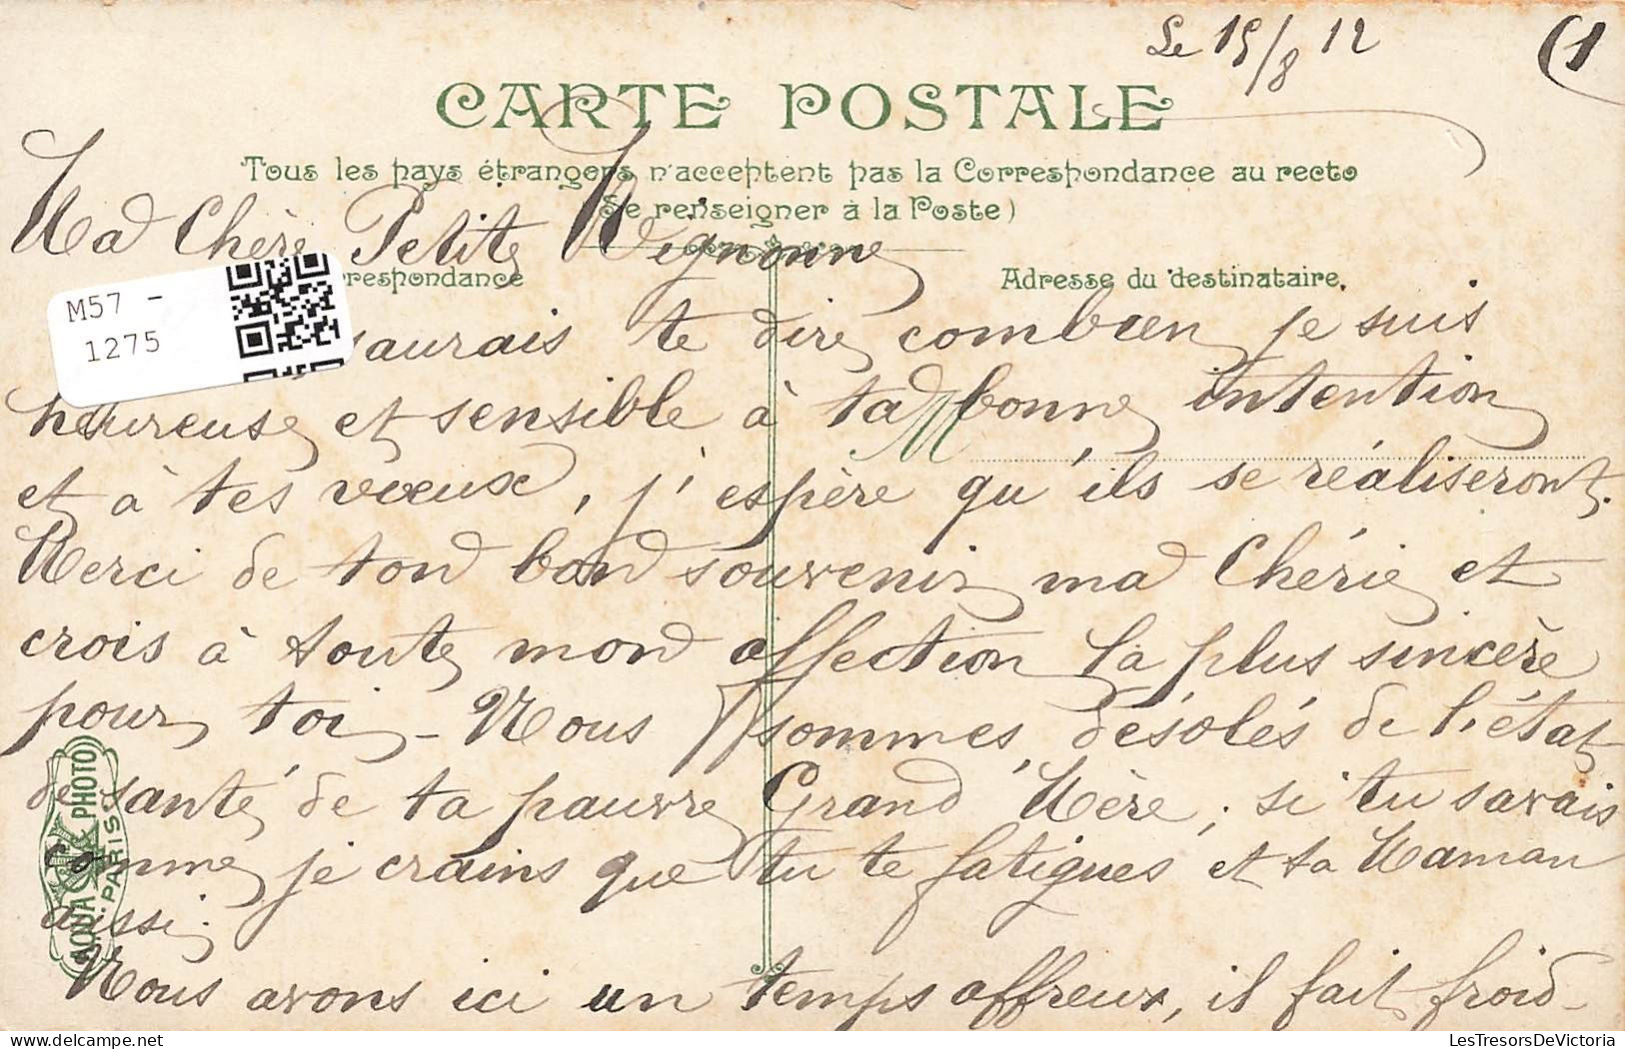 Le 15/8 12
(1
CARTE POSTALE
Tous les pays étrangers n'acceptent pas la Correspondance au recto
(Se renseigner à la Poste)
Ma Chère Petite Mignonne
rrespondance
Adresse du destinataire
M57 -
1275
saurais te dire combien je suis
heureuse et sensible à ta bonne intention
M
et à tes vœux, j'espère qu'ils se réaliseront.
Merci de ton bon souvenir ma Chérie et
crois à toute mon affection la plus sincère
pour toi - Nous sommes désolés de l'état
de santé de ta pauvre Grand'Mère; si tu savais
comme je crains que tu te fatigues et ta Maman
aussi.
Nous avons ici un temps affreux, il fait froid-
AQUA PHOTO
PARIS
LesTresorsDeVictoria